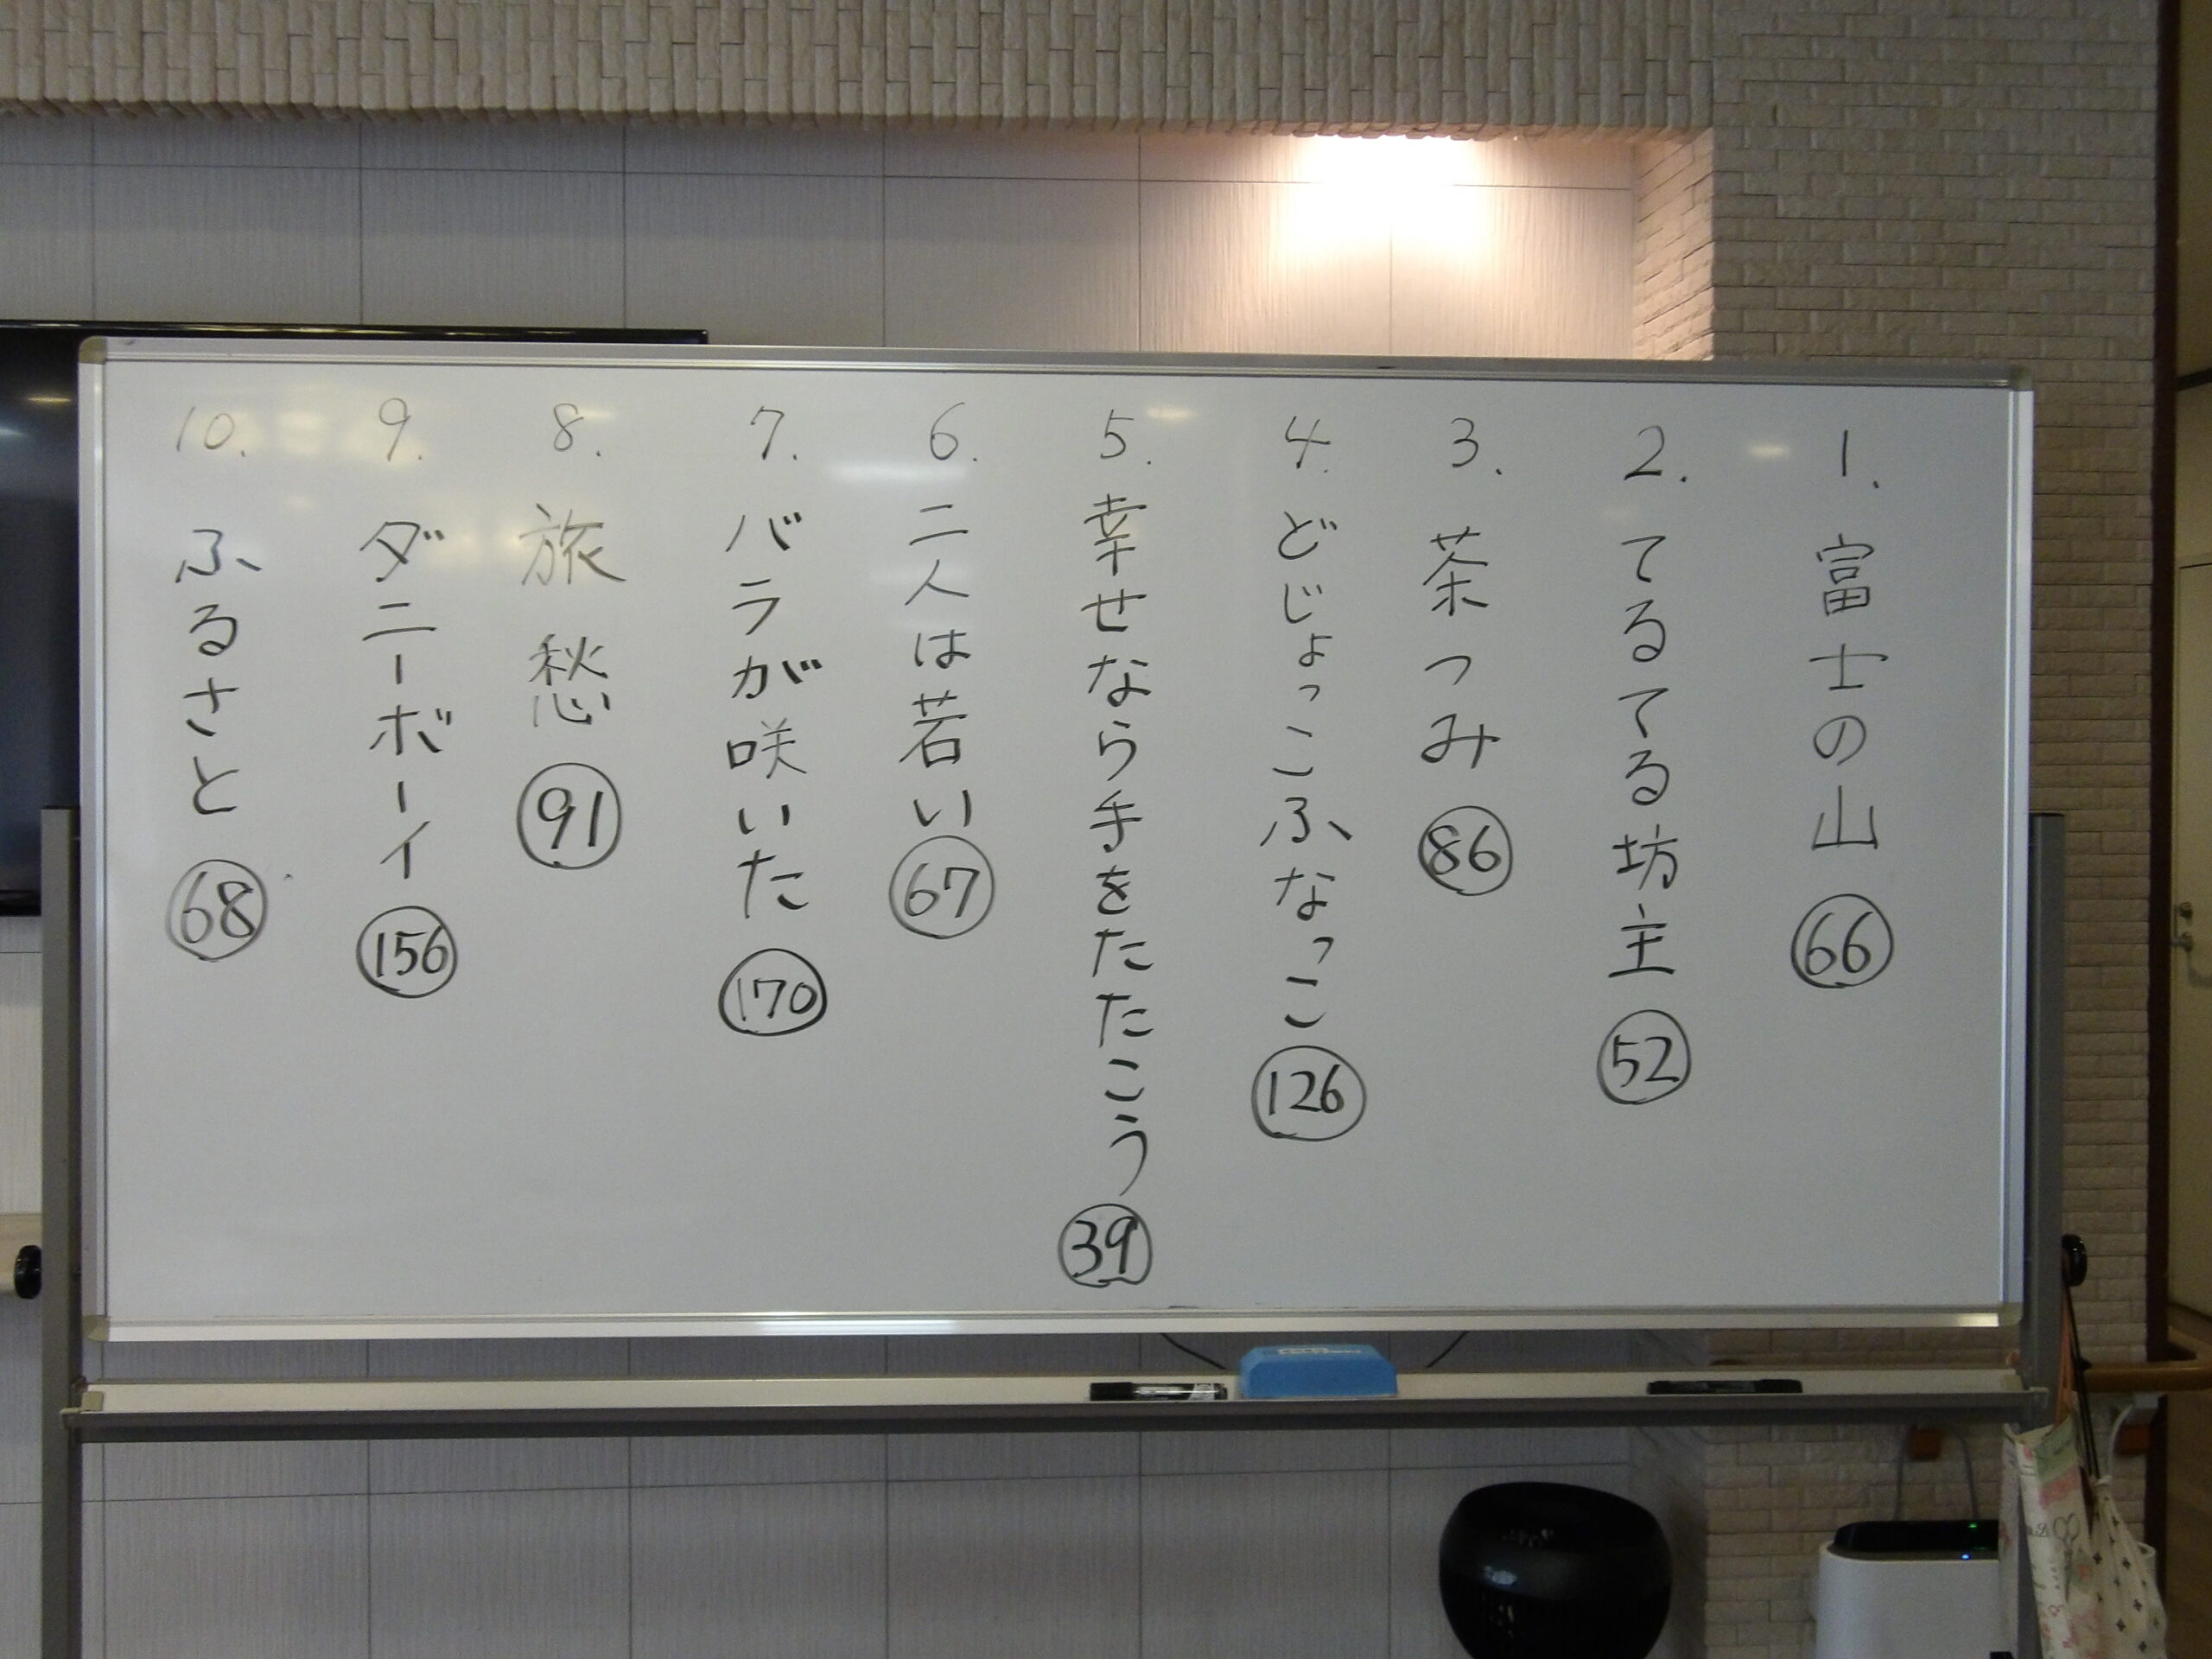 1. 富士の山 66
2. てるてる坊主 52
3. 茶つみ 86
4. どじょっこふなっこ 126
5. 幸せなら手をたたこう 39
6. 二人は若い 67
7. バラが咲いた 170
8. 旅愁 91
9. ダニーボーイ 156
10. ふるさと 68